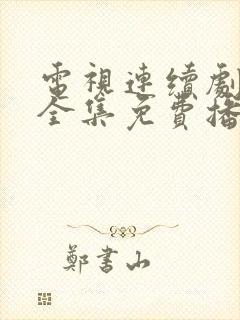 電視連續劇
全集免費播
鄭書山